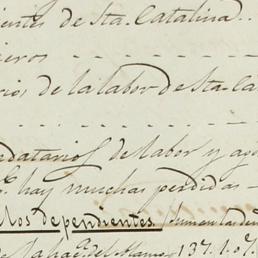 entes de Sta. Catalina..
eros - - - - - -
rios, de la labor de Sta. Ca
- - - - - -
ndatarios de labor y agu
hay muchas perdidas -
llos dependientes.
de la hac.ª del Alamo, 137. 1. 07.